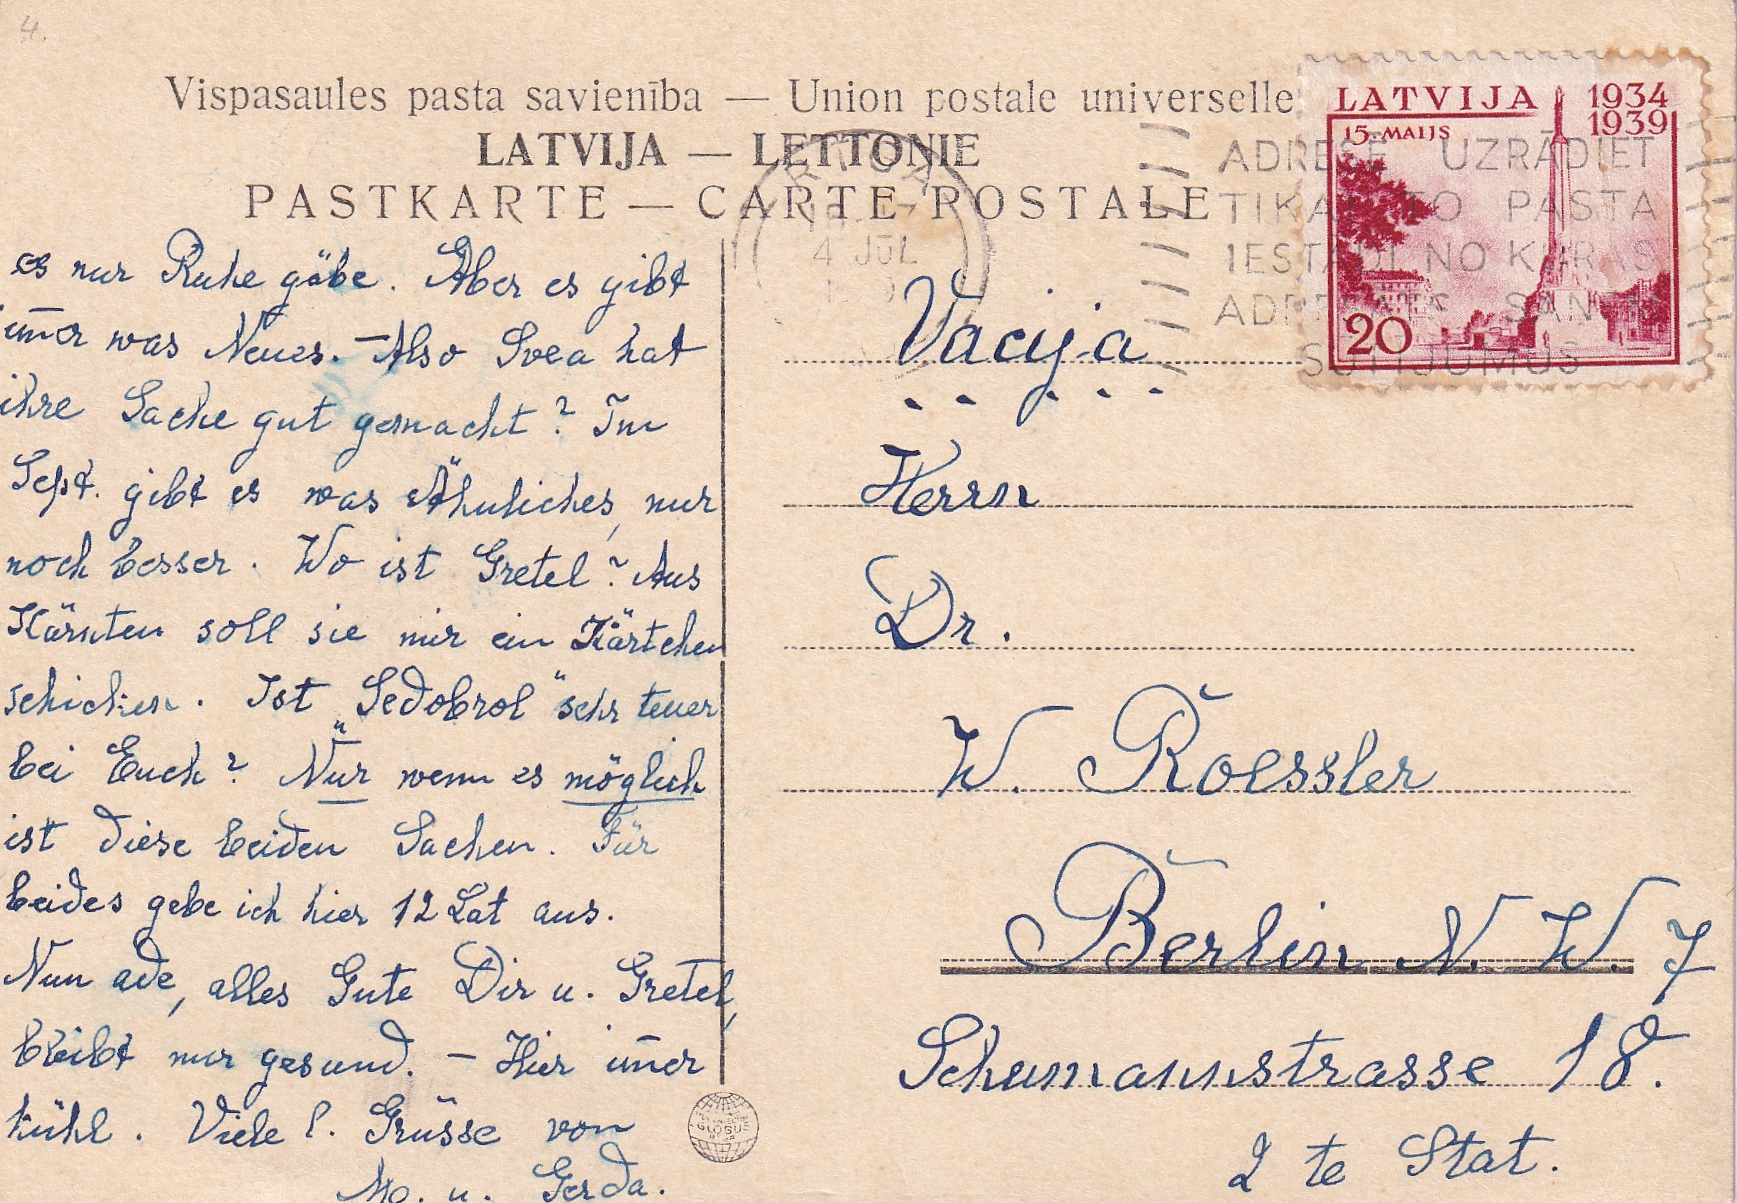 4.
Vispasaules pasta savienība — Union postale universelle
LATVIJA — LETTONIE
PASTKARTE — CARTE POSTALE
LATVIJA 1934
1939
15. MAIJS
20
RIGA
4 JŪL
ADRESĒ UZRĀDIET
TIKAI TO PASTA
IESTĀDI NO KURAS
ADRESATS SAŅEM
SŪTĪJUMUS
es nur Ruhe gäbe. Aber es gibt
im̅er was Neues. – Also Svea hat
ihre Sache gut gemacht? Im
Sept. gibt es was Ähnliches, nur
noch besser. Wo ist Gretel? Aus
Kärnten soll sie mir ein Kärtchen
schicken. Ist „Sedobrol" sehr teuer
bei Euch? Nur wenn es möglich
ist diese beiden Sachen. Für
beides gebe ich hier 12 Lat aus.
Nun ade, alles Gute Dir u. Gretel,
bleibt nur gesund. – Hier im̅er
kühl. Viele l. Grüsse von
Mo. u. Gerda.
Vacija
Herrn
Dr.
W. Roessler
Berlin N. W. 7
Schumannstrasse 18.
2 te Stat.
GLOBUS